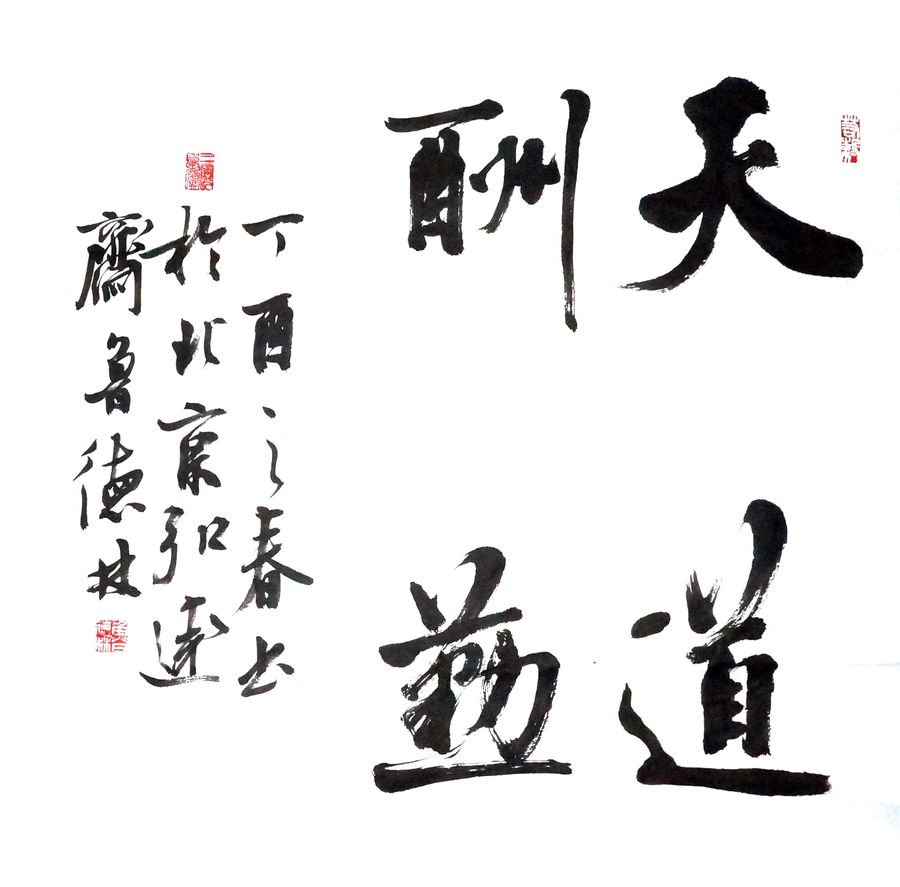 天道
酬勤
丁酉之春书
於北京弘
齋鲁德林